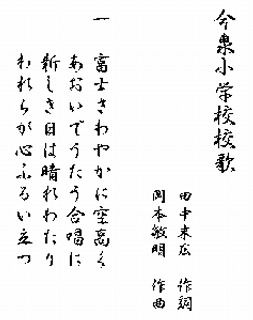 今泉小学校校歌
田中末広 作詞
岡本敏明 作曲
一 富士さわやかに空高く
あおいでうたう合唱に
新しき日は晴れわたり
われらが心ふるい立つ